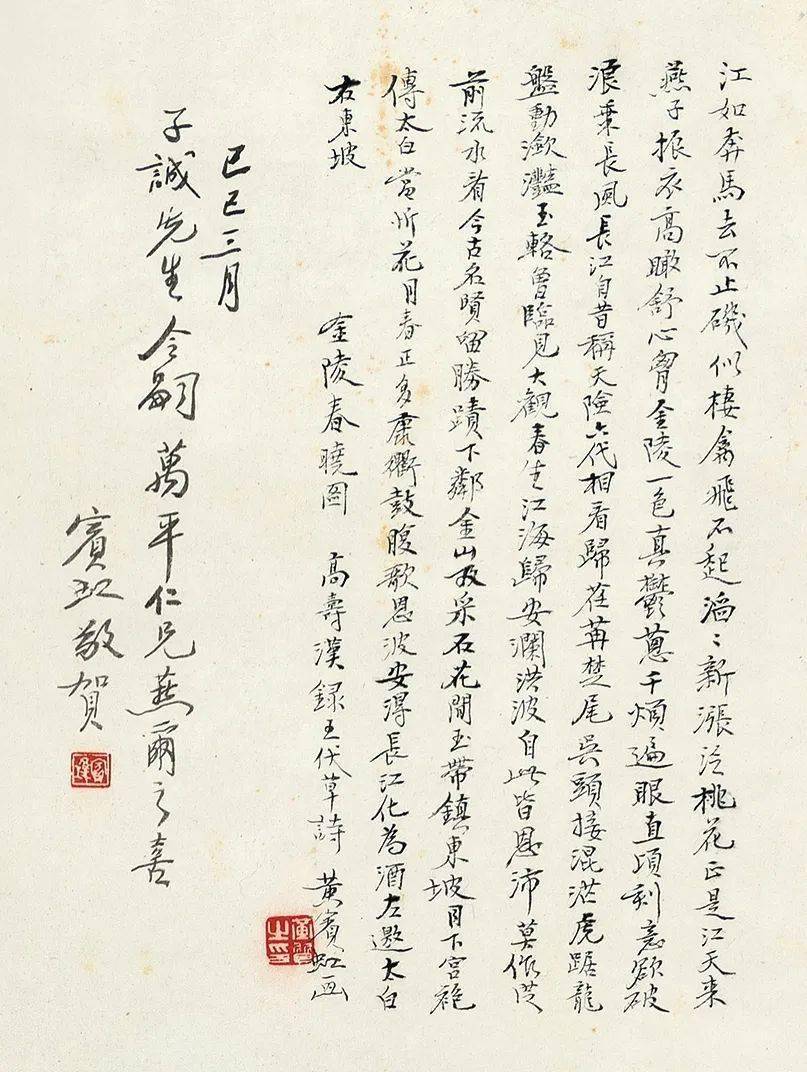 江如奔馬去不止磯似棲禽飛不起滔〻新漲泛桃花正是江天來
燕子振衣高瞰舒心胷金陵一色真鬱蔥千煩遍眼直頃刻意欲破
浪乘長風長江自昔稱天險六代相看歸荏苒楚尾吳頭接混茫虎踞龍
盤動瀲灩玉輅曾臨見大觀春生江海歸安瀾洪波自此皆恩沛莫作從
前流水看今古名賢留勝蹟下鄰金山及采石花間玉帶鎮東坡月下宮袍
傳太白當所花月春正多康衢鼓腹歌恩波安得長江化為酒左邀太白
右東坡
金陵春曉圖 高壽漢錄王伏草詩 黃賓虹画
己巳三月
子誠先生令嗣萬平仁兄燕爾之喜
賓虹敬賀